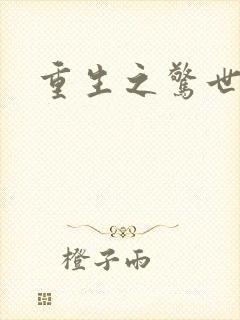 重生之驚世
橙子雨